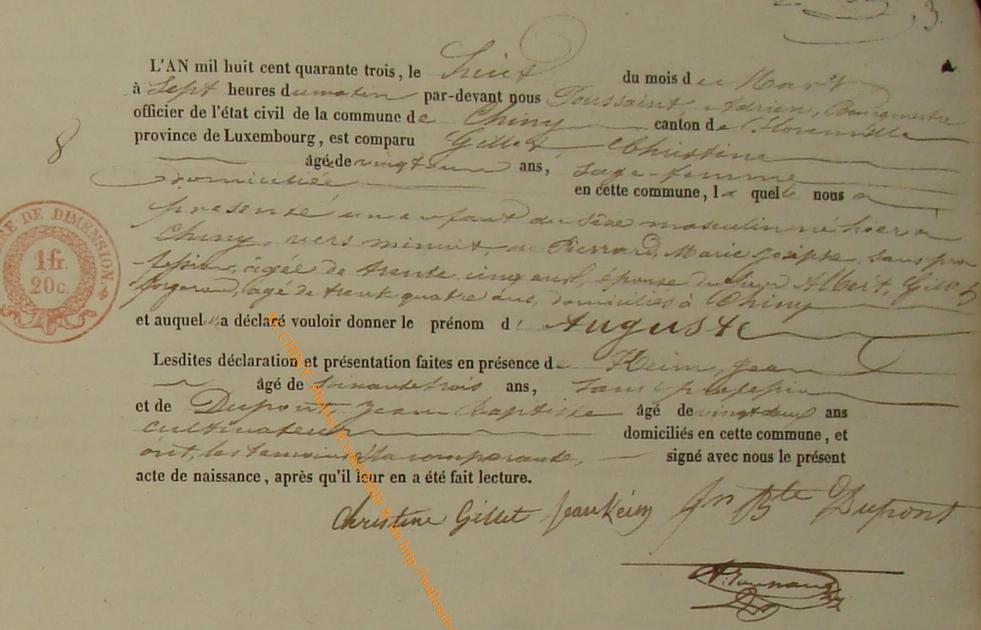 3.
L'AN mil huit cent quarante trois, le huit du mois de Mars
à Sept heures du matin par-devant nous Toussaint, Adrien, Bourgmestre
officier de l'état civil de la commune de Chiny canton de Florenville
province de Luxembourg, est comparu Gillet Christine
8
âgée de vingt un ans, sage-femme
domiciliée en cette commune, la quelle nous a
présenté un enfant du sèxe masculin né hier a
Chiny, vers minuit, de Pierrard, Marie Josèphe, sans pro
fession, agée de trente cinq ans, épouse du Sieur Albert,
forgeron, agé de trente quatre ans, domiciliés à Chiny
et auquel elle a déclaré vouloir donner le prénom d' Auguste
Lesdites déclaration et présentation faites en présence de Keim, Jean
âgé de soixante trois ans, sans profession
et de Dupont, Jean Baptiste âgé de vingt deux ans
cultivateur domiciliés en cette commune, et
ont, les temoins & la comparante, signé avec nous le présent
acte de naissance, après qu'il leur en a été fait lecture.
Christine Gillet Jean Keim Jn Bte Dupont
DE DIMENSION
1 fr.
20 c.